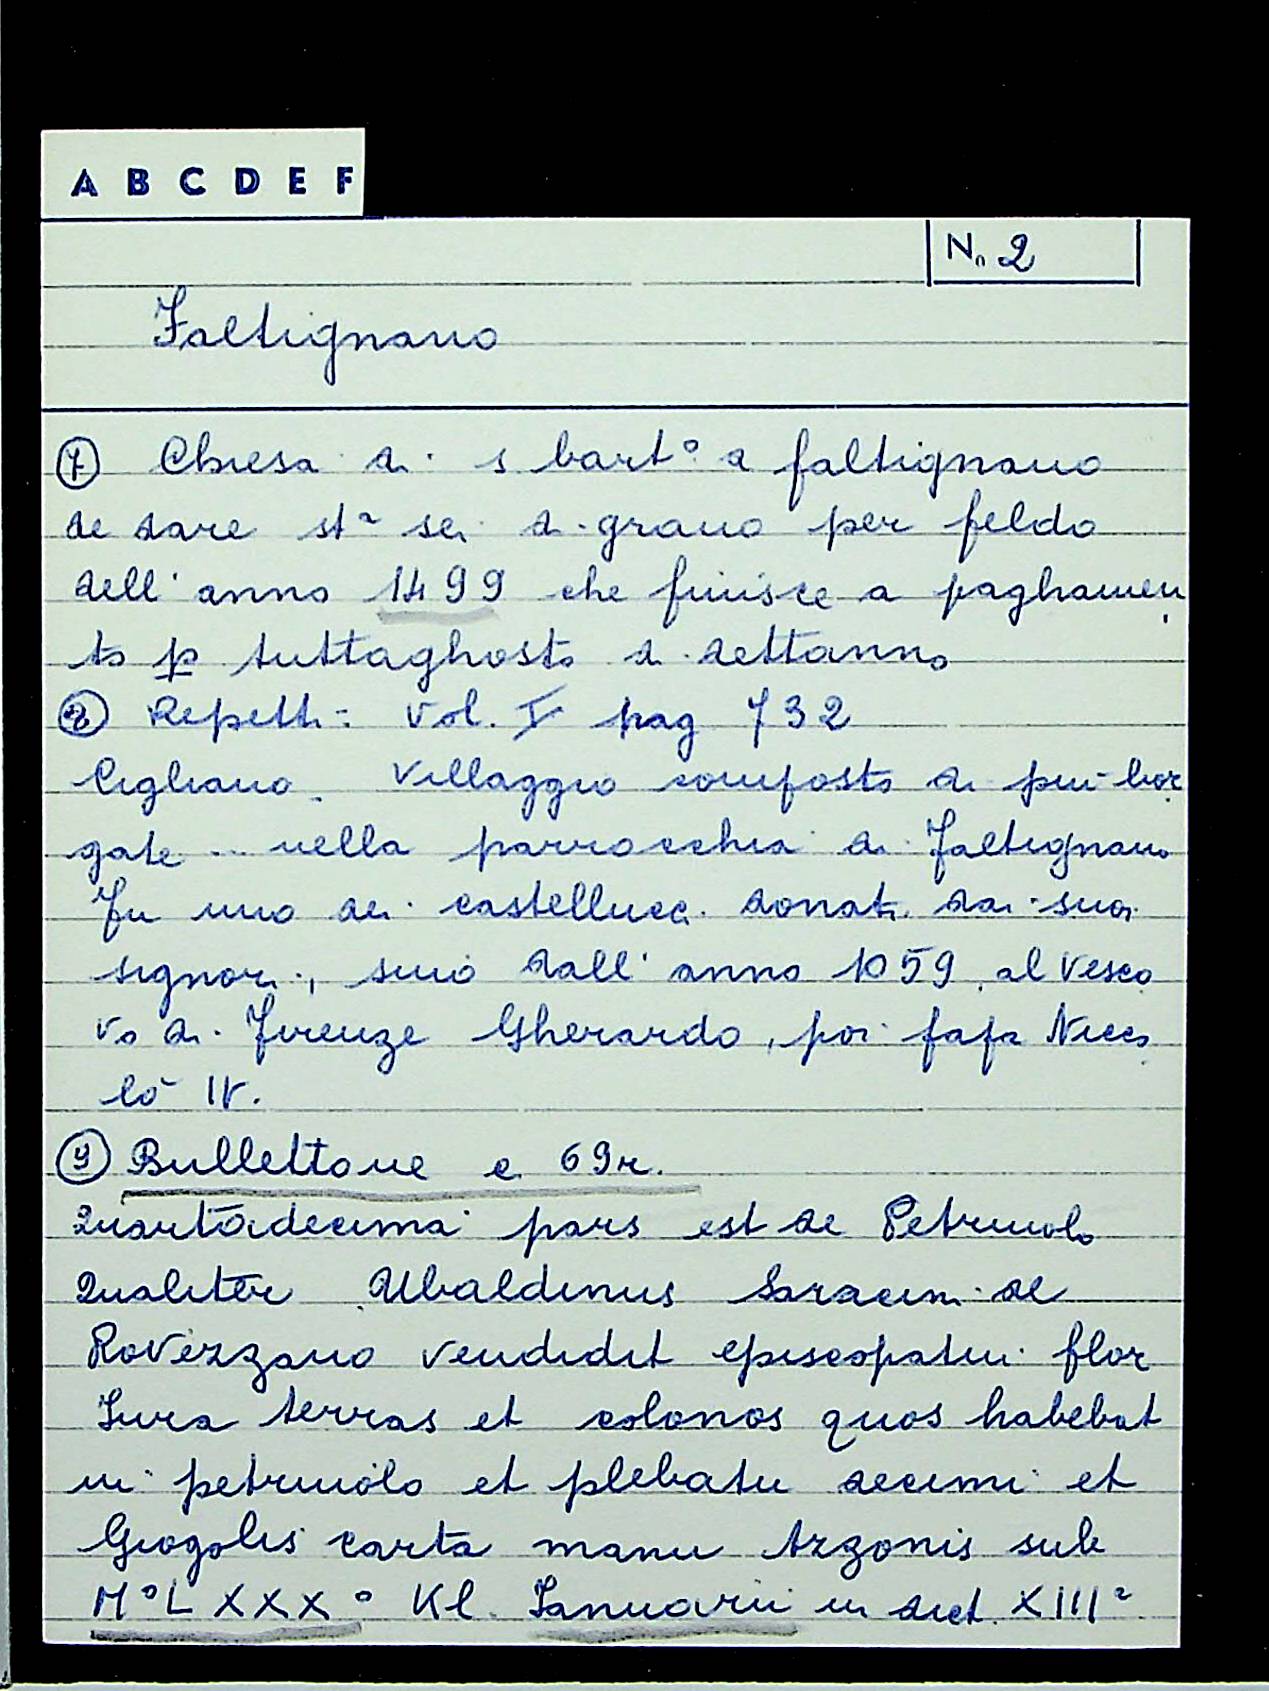 A B C D E F
N. 2
Faltignano
7 Chiesa di s bart° a faltignano
de dare stª sei di grano per feldo
dell'anno 1499 che finisce a paghamen
to p tuttaghosto di dettanno
8 Repetti = Vol. I pag 732
Cigliano. Villaggio composto di più bor
gate ... nella parrocchia di Faltignano
Fu uno dei castellucci donati dai suoi
signori, sino dall'anno 1059, al Vesco
vo di Firenze Gherardo, poi papa Nicco
lò IV.
9 Bullettone c 69r.
Quartadecima pars est de Petriuolo
Qualiter Ubaldinus Saracini de
Rovezzano vendidit episcopatui flor
Iura terras et colonos quos habebat
in petriuolo et plebatu decimi et
Giogolis carta manu Azzonis sub
M°LXXX° Kl. Ianuarii in dict. XIIIª